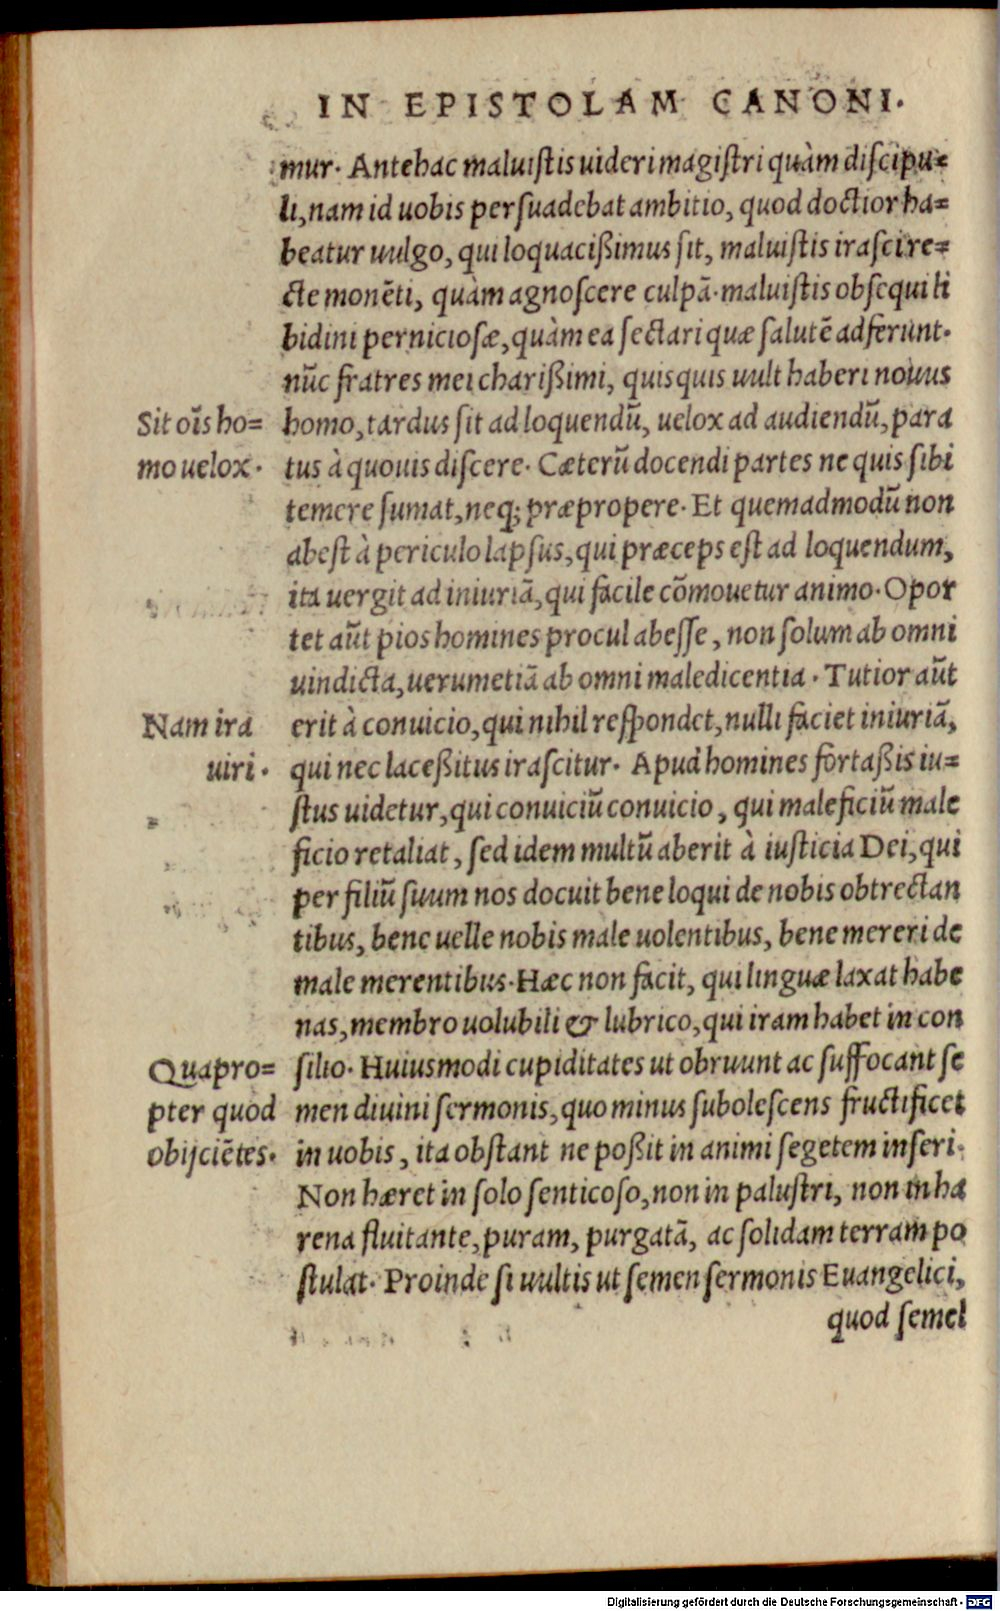 IN EPISTOLAM CANONI.
mur. Antehac maluiſtis uideri magiſtri quàm diſcipu=
li, nam id uobis perſuadebat ambitio, quod doctior ha=
beatur uulgo, qui loquacißimus ſit, maluiſtis iraſci re=
cte monẽti, quàm agnoſcere culpã. maluiſtis obſequi li
bidini pernicioſæ, quàm ea ſectari quæ ſalutẽ adferunt.
nũc fratres mei charißimi, quisquis uult haberi nouus
Sit oĩs ho=
mo uelox.
homo, tardus ſit ad loquendũ, uelox ad audiendũ, para
tus à quouis diſcere. Cæterũ docendi partes ne quis ſibi
temere ſumat, neq; præpropere. Et quemadmodũ non
abeſt à periculo lapſus, qui præceps eſt ad loquendum,
ita uergit ad iniuriã, qui facile cõmouetur animo. Opor
tet aũt pios homines procul abeſſe, non ſolum ab omni
uindicta, uerumetiã ab omni maledicentia. Tutior aũt
Nam ira
uiri.
erit à conuicio, qui nihil reſpondet, nulli faciet iniuriã,
qui nec laceßitus iraſcitur. Apud homines fortaßis iu=
ſtus uidetur, qui conuiciũ conuicio, qui maleficiũ male
ficio retaliat, ſed idem multũ aberit à iuſticia Dei, qui
per filiũ ſuum nos docuit bene loqui de nobis obtrectan
tibus, bene uelle nobis male uolentibus, bene mereri de
male merentibus. Hæc non facit, qui linguæ laxat habe
nas, membro uolubili & lubrico, qui iram habet in con
Quapro=
pter quod
obijciẽtes.
ſilio. Huiusmodi cupiditates ut obruunt ac ſuffocant ſe
men diuini ſermonis, quo minus ſuboleſcens fructificet
in uobis, ita obſtant ne poßit in animi ſegetem inſeri.
Non hæret in ſolo ſenticoſo, non in paluſtri, non in ha
rena fluitante, puram, purgatã, ac ſolidam terram po
ſtulat. Proinde ſi uultis ut ſemen ſermonis Euangelici,
quod ſemel
Digitalisierung gefördert durch die Deutsche Forschungsgemeinschaft - DFG